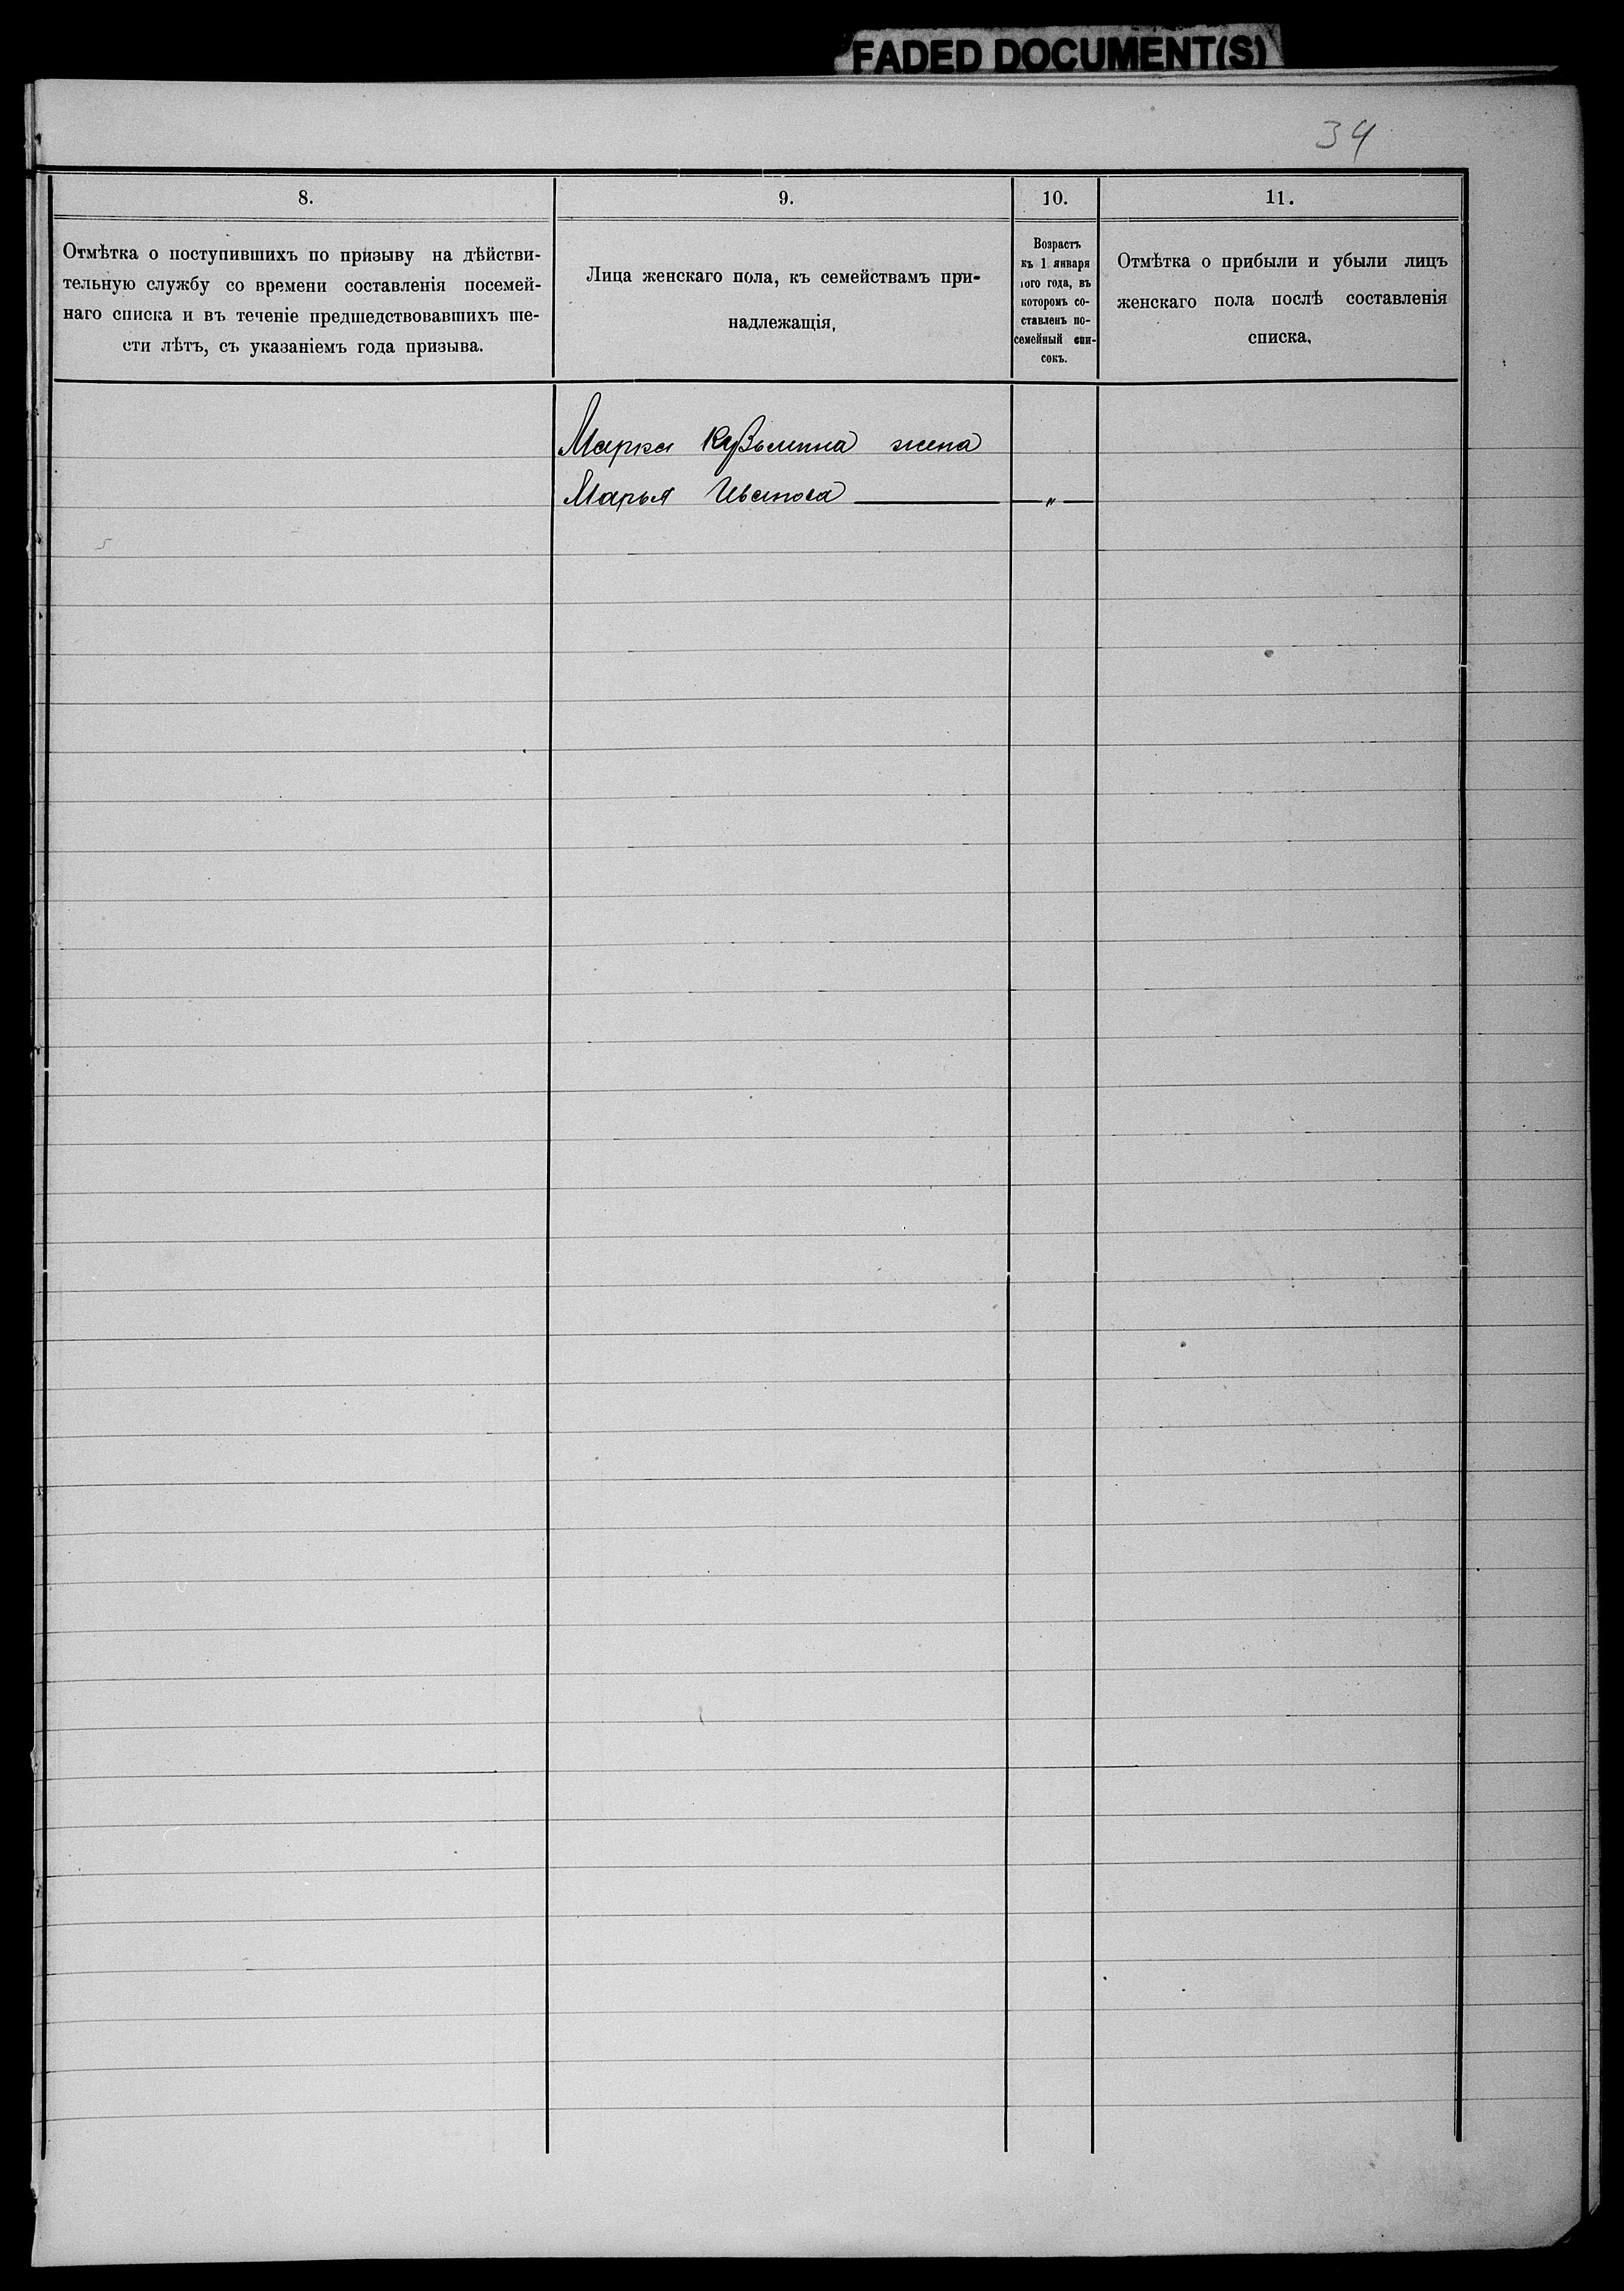 FADED DOCUMENT(S)
34
8.
Отмѣтка о поступившихъ по призыву на дѣйстви-
тельную службу со времени составленія посемей-
наго списка и въ теченіе предшедствовавшихъ ше-
сти лѣтъ, съ указаніемъ года призыва.
9.
Лица женскаго пола, къ семействамъ при-
надлежащія,
10.
Возрастъ
къ 1 января
того года, въ
которомъ со-
ставленъ по-
семейный спи-
сокъ.
11.
Отмѣтка о прибыли и убыли лицъ
женскаго пола послѣ составленія
списка,
Марка Кузьмина жена
Марья Иванова — „ —